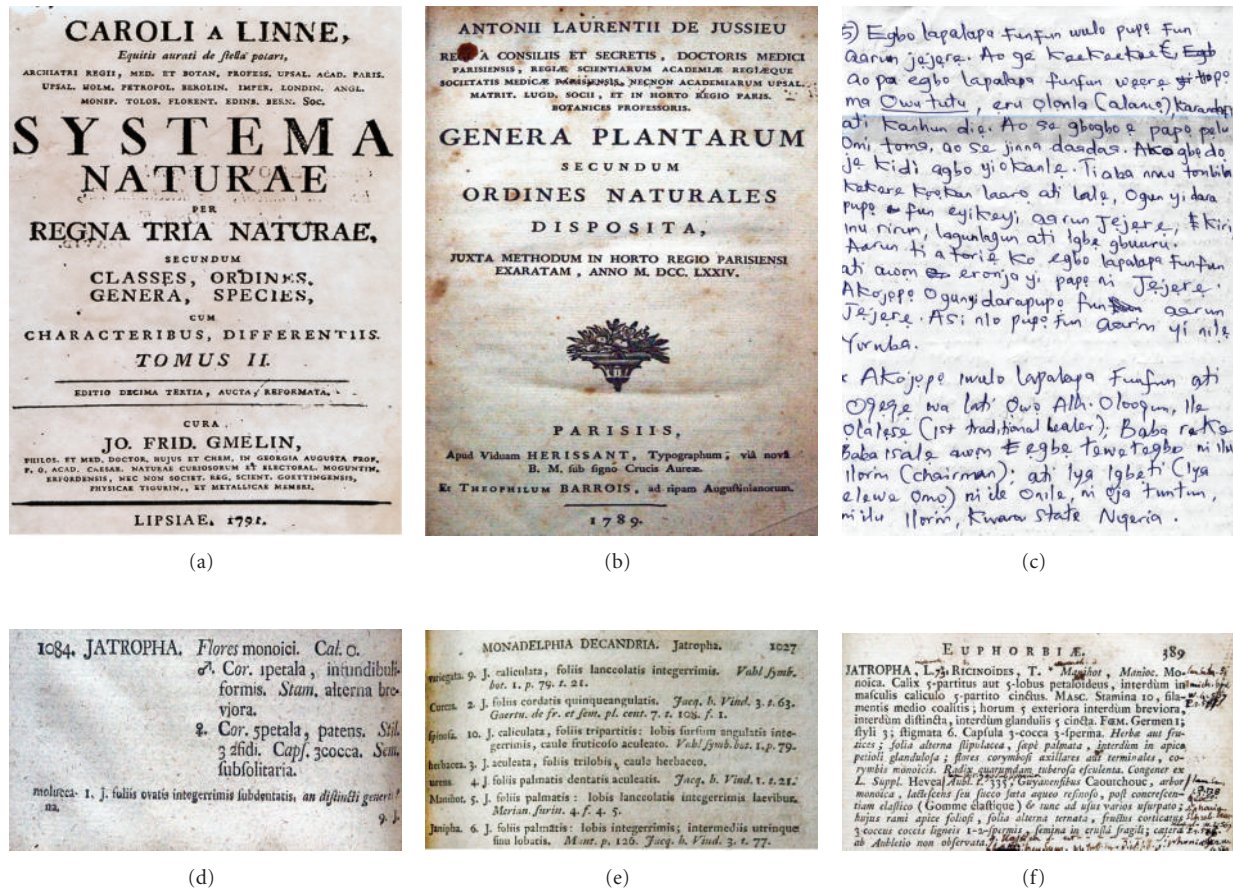 CAROLI A LINNE,
Equitis aurati de stella polari,
ARCHIATRI REGII, MED. ET BOTAN. PROFESS. UPSAL. ACAD. PARIS.
UPSAL. HOLM. PETROPOL. BEROLIN. IMPER. LONDIN. ANGL.
MONSP. TOLOS. FLORENT. EDINB. BERN. Soc.
SYSTEMA
NATURAE
PER
REGNA TRIA NATURAE,
SECUNDUM
CLASSES, ORDINES,
GENERA, SPECIES,
CUM
CHARACTERIBUS, DIFFERENTIIS.
TOMUS II.
EDITIO DECIMA TERTIA, AUCTA, REFORMATA.
CURA
JO. FRID. GMELIN,
PHILOS. ET MED. DOCTOR. HUJUS ET CHEM. IN GEORGIA AUGUSTA PROF.
P. O. ACAD. CAESAR. NATURAE CURIOSORUM ET ELECTORAL. MOGUNTIN.
ERFORDENSIS, NEC NON SOCIET. REG. SCIENT. GOETTINGENSIS,
PHYSICAE TIGURIN., ET METALLICAE MEMBRI.
LIPSIAE, 1791.
(a)
ANTONII LAURENTII DE JUSSIEU
REGI A CONSILIIS ET SECRETIS, DOCTORIS MEDICI
PARISIENSIS, REGIÆ SCIENTIARUM ACADEMIÆ REGIÆQUE
SOCIETATIS MEDICÆ PARISIENSIS, NECNON ACADEMIARUM UPSAL.
MATRIT. LUGD. SOCII, ET IN HORTO REGIO PARIS.
BOTANICES PROFESSORIS.
GENERA PLANTARUM
SECUNDUM
ORDINES NATURALES
DISPOSITA,
JUXTA METHODUM IN HORTO REGIO PARISIENSI
EXARATAM, ANNO M. DCC. LXXIV.
PARISIIS,
Apud Viduam HERISSANT, Typographum; viâ novâ
B. M. sub signo Crucis Aureæ.
Et THEOPHILUM BARROIS, ad ripam Augustinianorum.
1789.
(b)
5) Egbo lapalapa funfun wulo pupọ fun
aarun jẹjẹrẹ. Ao ge
ao pa egbo lapalapa funfun
ma Owu tutu, eru ọlọnla (alamọ),
ati Kanhun die. Ao se gbogbo ẹ papọ pelu
Omi toma, ao se jinna daadaa.
je Kidi agbo yiokanle. Tiaba
kọọkan laarọ ati lalẹ, Ogun yi dara
pupọ fun eyikeyi aarun Jejere,
inu rirun, lagunlagun ati Igbẹ gbuuru.
Aarun ti a torie ko egbo lapalapa funfun
ati awọn eronja yi papọ ni Jẹjẹrẹ.
Akojọpọ Ogunyi darapupọ fun aarun
Jejere. Asi nlo pupọ fun aarun yi nilẹ
Yoruba.
Akojọpọ iwulo lapalapa Funfun ati
wa lati Ọwọ Alh. Oloogun, Ile
Olalẹsẹ (1st traditional healer); Baba
Baba Isale awọn egbẹ ni ilu
Ilorin (chairman); ati Iya Igbẹti (Iya
elewe Ọmọ) ni ile Onile, ni ọja tuntun,
ni ilu Ilorin, Kwara State Nigeria.
(c)
1084. JATROPHA. Flores monoici. Cal. 0.
♂. Cor. 1petala, infundibuli-
formis. Stam. alterna bre-
viora.
♀. Cor. 5petala, patens. Stil.
3 2fidi. Caps. 3cocca. Sem.
subsolitaria.
moluccana. 1. J. foliis ovatis integerrimis subdentatis, an distincti generis?
(d)
MONADELPHIA DECANDRIA. Jatropha. 1027
variegata. 9. J. caliculata, foliis lanceolatis integerrimis. Vahl symb.
bot. 1. p. 79. t. 21.
Curcas. 2. J. foliis cordatis quinqueangulatis. Jacq. h. Vind. 3. t. 63.
Gaertn. de fr. et sem. pl. cent. 7. t. 108. f. 1.
spinosa. 10. J. caliculata, foliis tripartitis: lobis sorsum angulatis inte-
gerrimis, caule fruticoso aculeato. Vahl symb. bot. 1. p. 79.
herbacea. 3. J. aculeata, foliis trilobis, caule herbaceo.
urens. 4. J. foliis palmatis dentatis aculeatis. Jacq. h. Vind. 1. t. 21.
Manihot. 5. J. foliis palmatis: lobis lanceolatis integerrimis laevibus.
Merian. surin. 4. f. 4. 5.
Janipha. 6. J. foliis palmatis: lobis integerrimis; intermediis utrinque
sinu lobatis. Mant. p. 126. Jacq. h. Vind. 3. t. 77.
(e)
EUPHORBIÆ. 389
JATROPHA, L. RICINOIDES, T. Manihot, Manioc. Mo-
noica. Calix 5-partitus aut 5-lobus petaloideus, interdùm in
masculis caliculo 5-partito cinctus. MASC. Stamina 10, fila-
mentis medio coalitis; horum 5 exteriora interdum breviora,
interdum distincta, interdum glandulis 5 cincta. FŒM. Germen 1;
styli 3; stigmata 6. Capsula 3-cocca 3-sperma. Herbæ aut fru-
tices; folia alterna stipulacea, sæpè palmata, interdùm in apice
petioli glandulosa; flores corymbosi axillares aut terminales, co-
rymbis monoicis. Radix quarumdam tuberosa esculenta. Congener ex
L. Suppl. Hevea Aubl. t. 335, Guyanensibus Caoutchouc, arbor
monoica, lactescens seu succo juta aqueo resinoso, post concrescen-
tiam elastico (Gomme élastique) & tunc ad usus varios usurpato;
hujus rami apice foliosi, folia alterna ternata, fructus corticatus
3-coccus coccis ligneis 1-2-spermis, semina in crustâ fragili; cætera
ab Aubletio non observata.
(f)